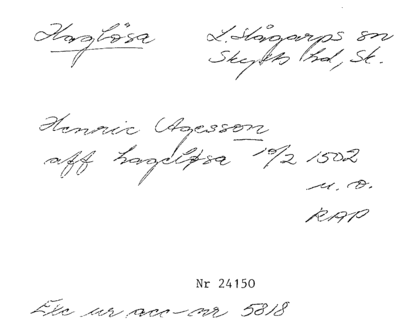 Haglösa L. Slågarps sn
Skytts hd, Sk.
Henric Agesson
aff hageløsa 10/2 1502
u. o.
RAP
Nr 24150
Exc ur acc-nr 5818